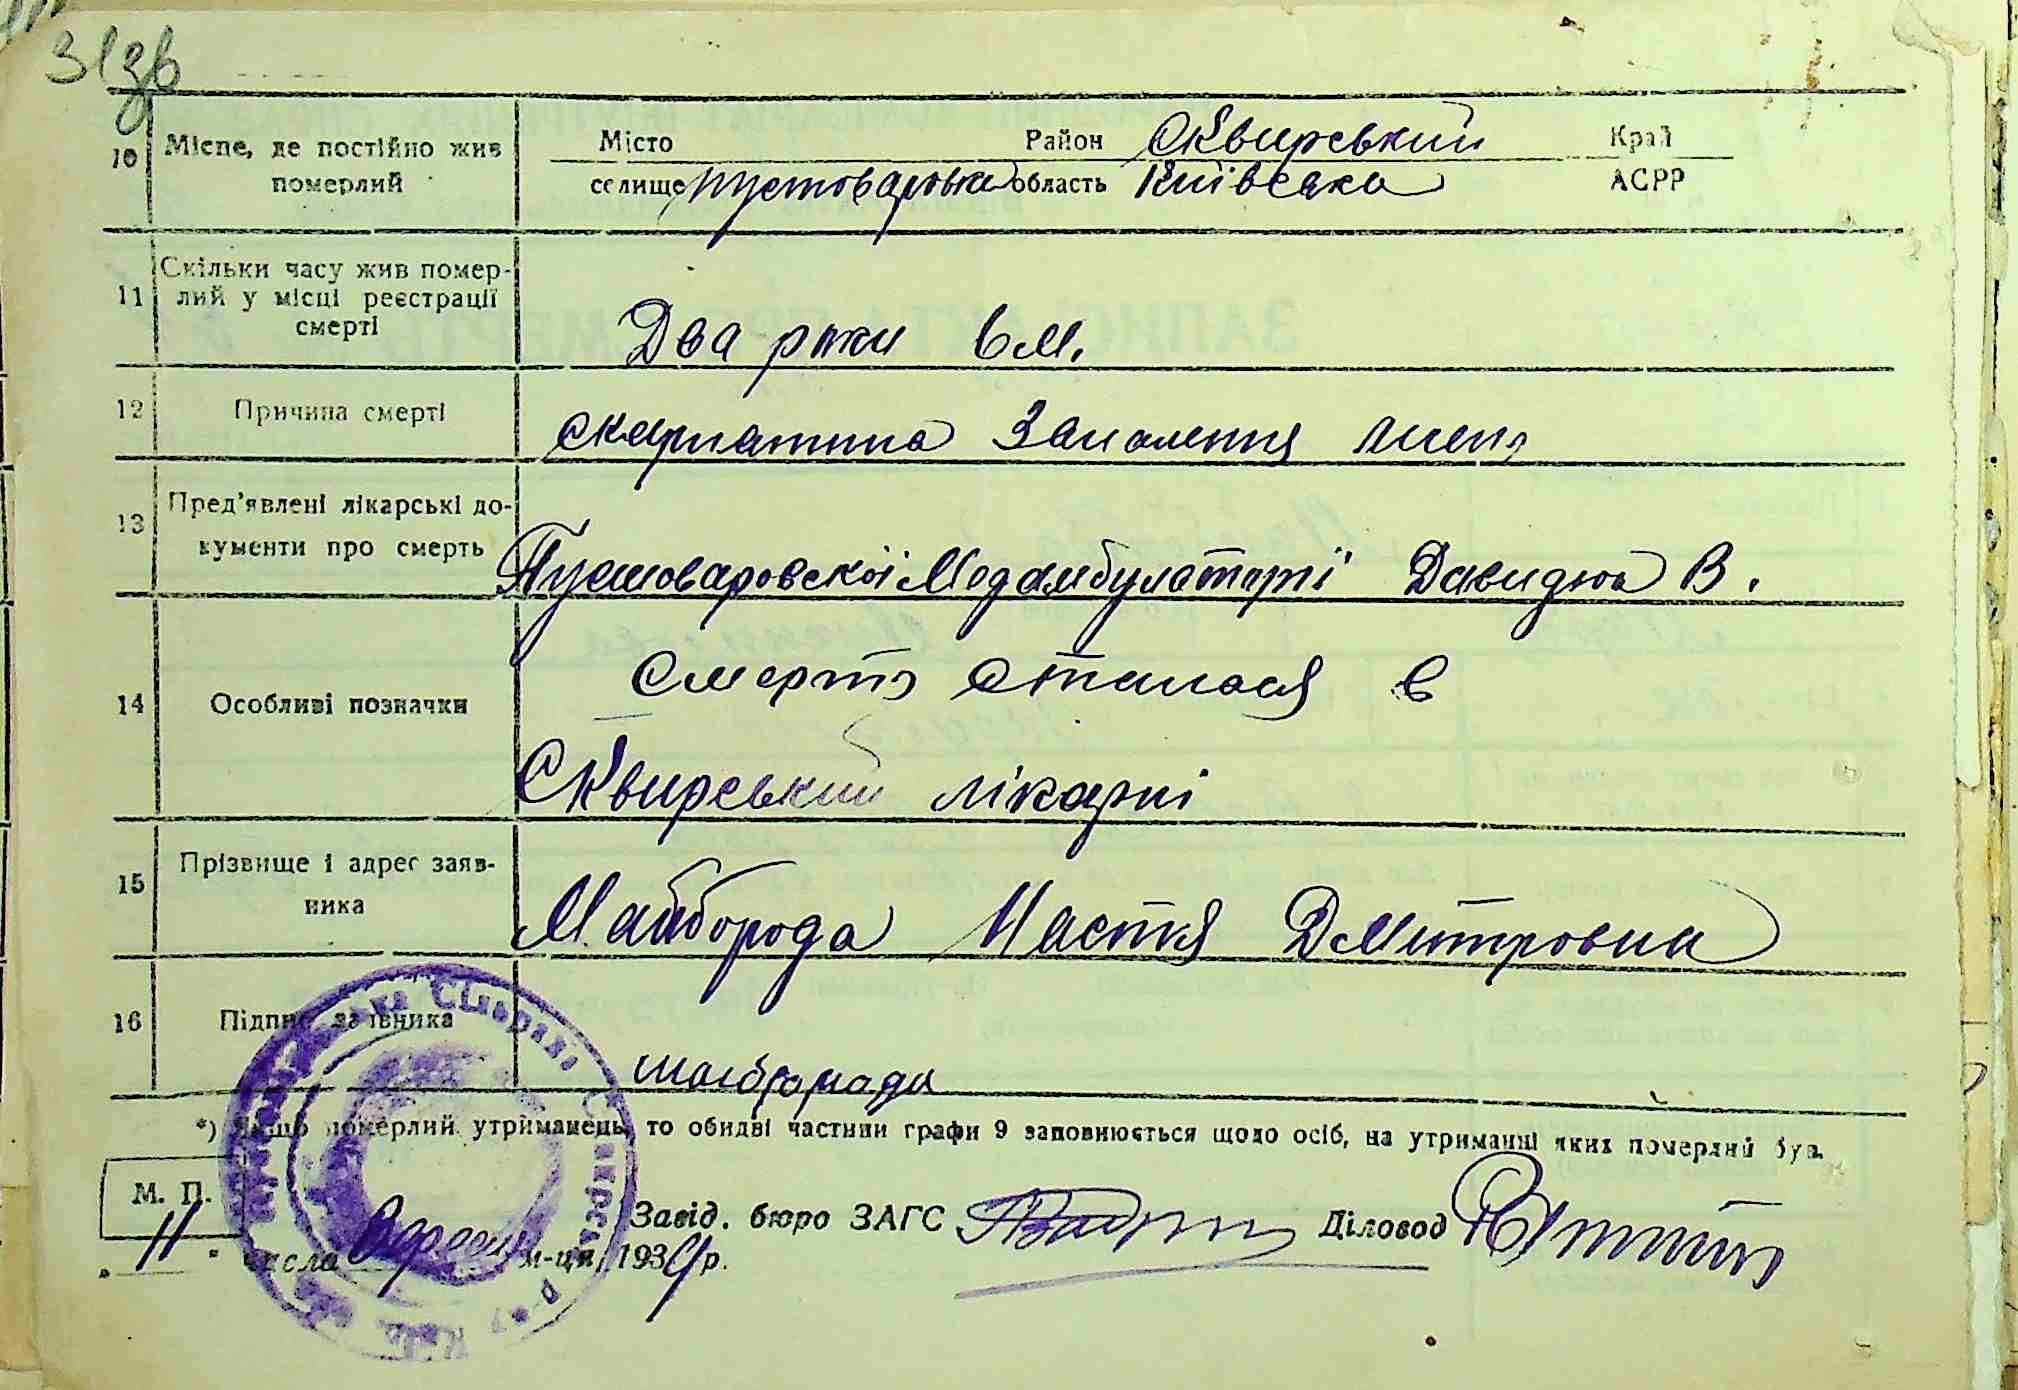 31зв
10 Місце, де постійно жив померлий
Місто Район Сквирський Край
селище Пустоваровка область Київська АСРР
11 Скільки часу жив помер-
лий у місці реєстрації
смерті
Два роки 6 м.
12 Причина смерті
скарлатина Запалення
13 Пред'явлені лікарські до-
кументи про смерть
Пустоваровскої Медамбулаторії Давидюк В.
14 Особливі позначки
Смерть сталася в
Сквирський лікарні
15 Прізвище і адрес заяв-
ника
Майборода Настя Дмитровна
16 Підпис заявника
*) Якщо померлий утриманець, то обидві частини графи 9 заповнюється щодо осіб, на утриманні яких померлий був.
М. П.
Завід. бюро ЗАГС Діловод
„11" числа Вересня м-ця, 1939 р.
Сільрада Сквирськ р-ну Київ. обл.